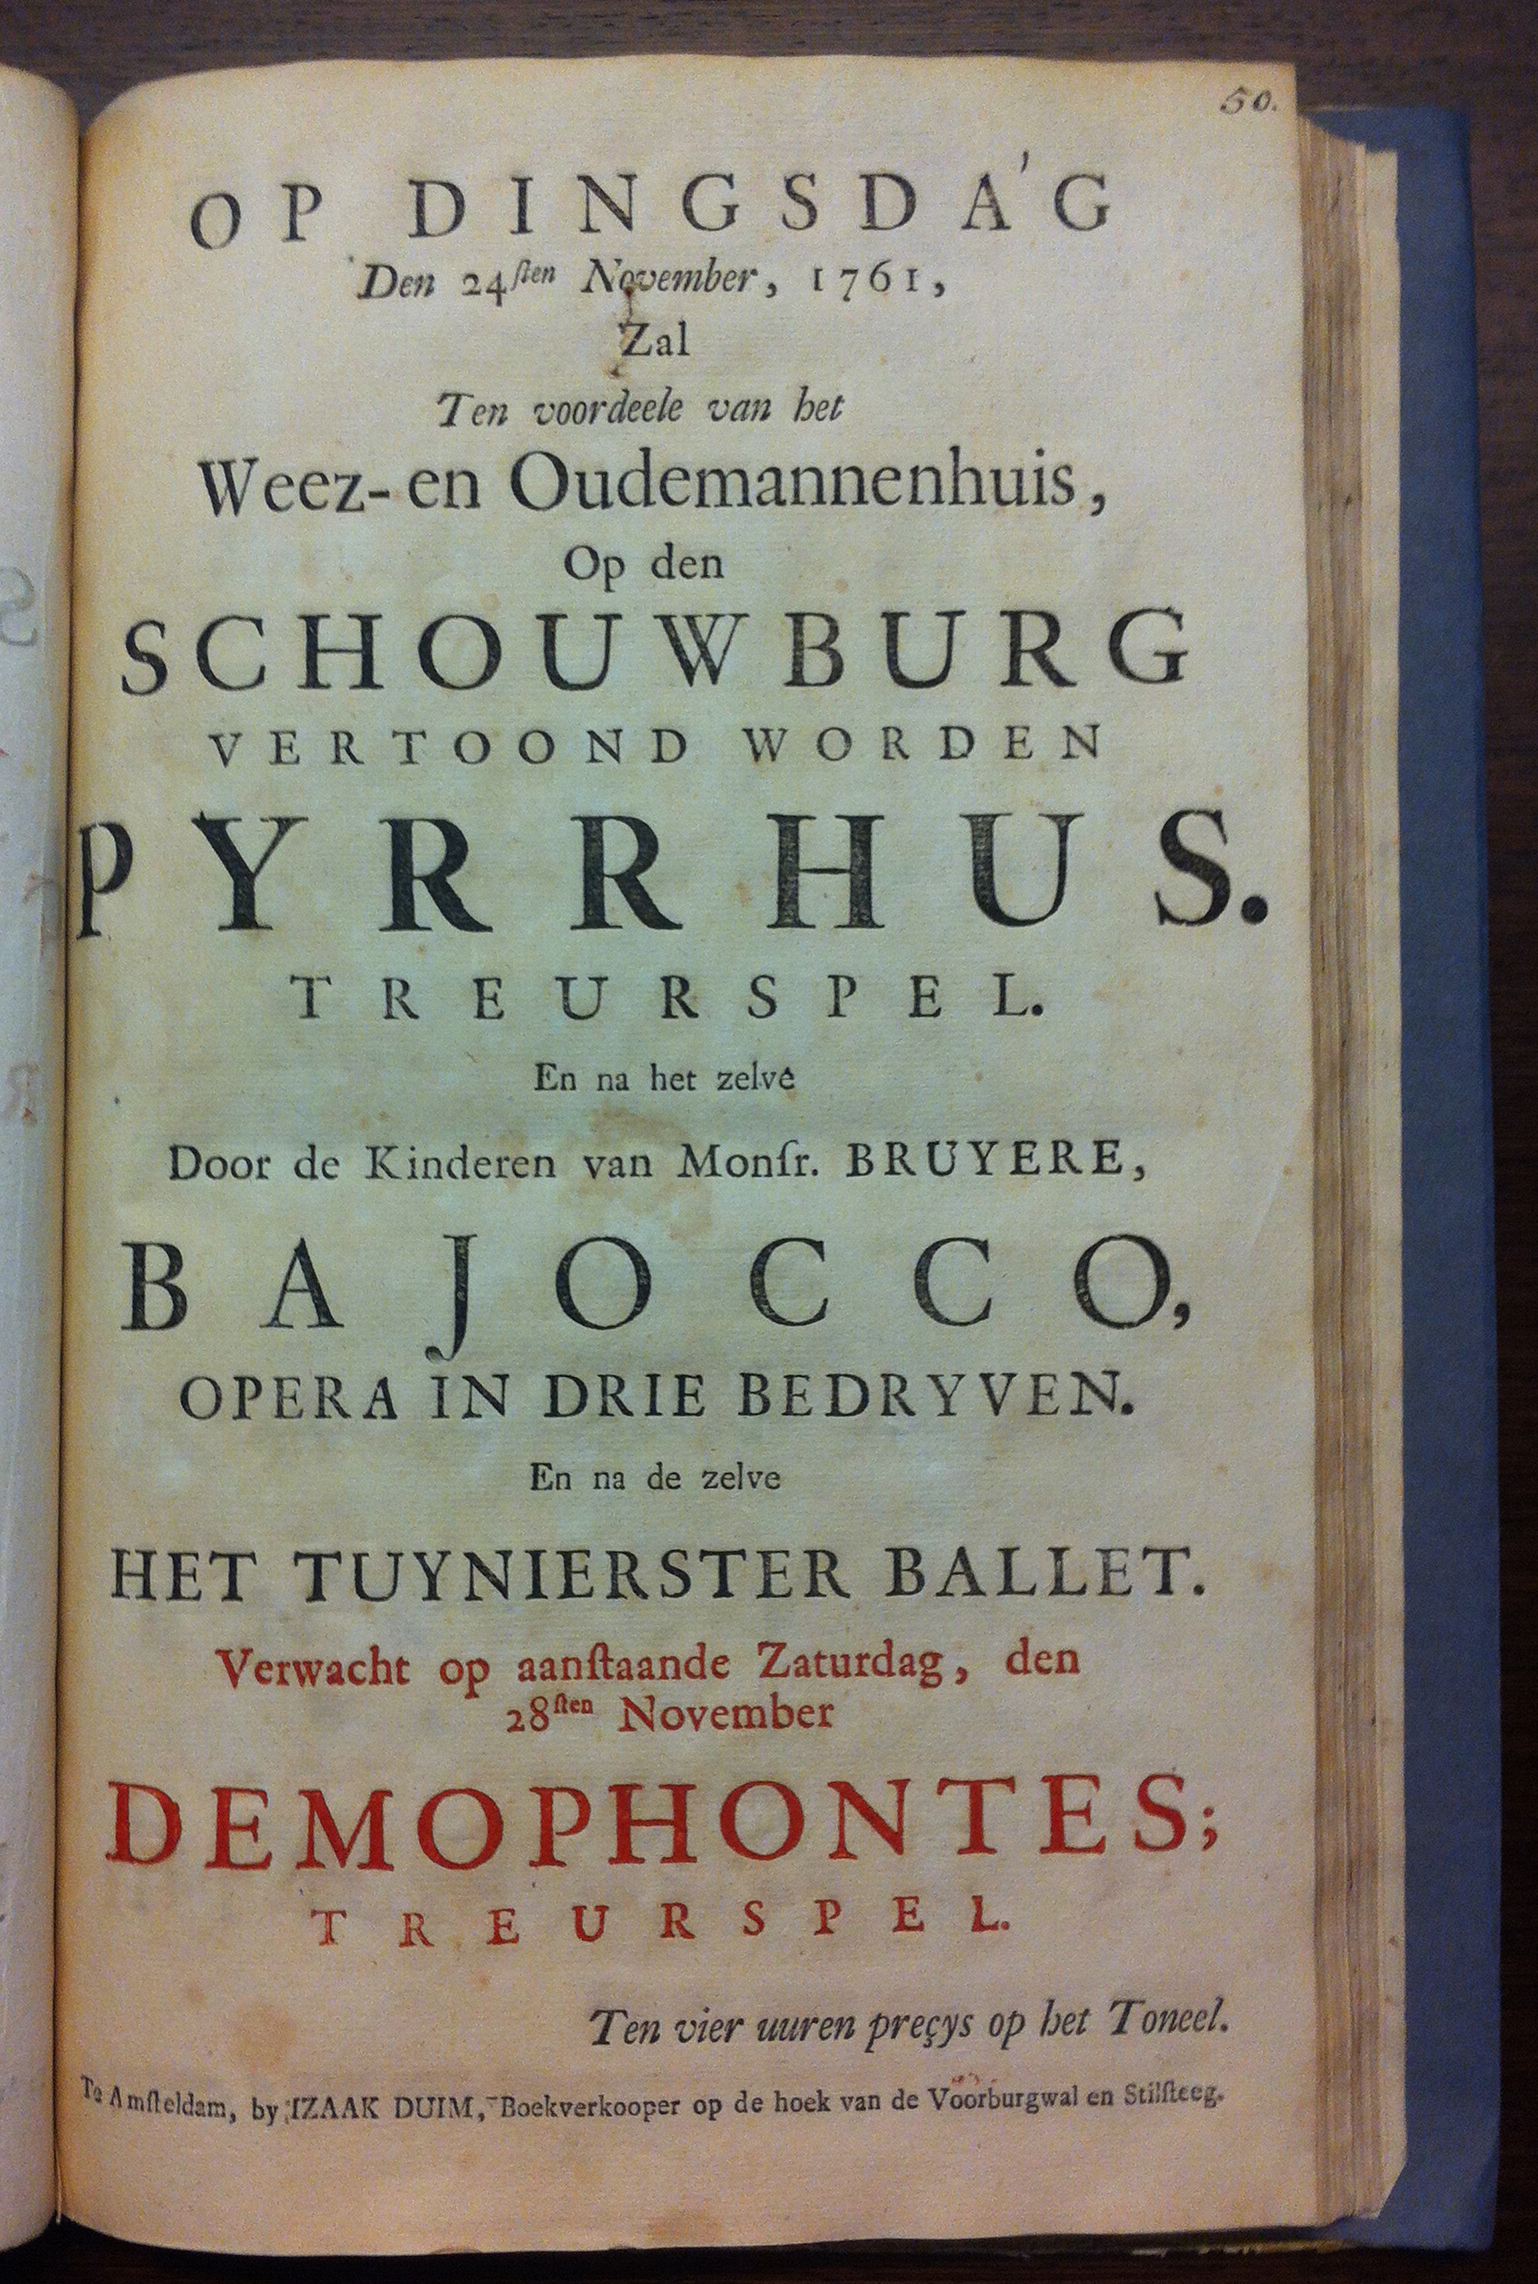 50.
OP DINGSDAG
Den 24ſten November, 1761,
Zal
Ten voordeele van het
Weez- en Oudemannenhuis,
Op den
SCHOUWBURG
VERTOOND WORDEN
PYRRHUS.
TREURSPEL.
En na het zelve
Door de Kinderen van Monſr. BRUYERE,
BAJOCCO,
OPERA IN DRIE BEDRYVEN.
En na de zelve
HET TUYNIERSTER BALLET.
Verwacht op aanſtaande Zaturdag, den
28ſten November
DEMOPHONTES;
TREURSPEL.
Ten vier uuren preçys op het Toneel.
Te Amſteldam, by IZAAK DUIM, Boekverkooper op de hoek van de Voorburgwal en Stilſteeg.